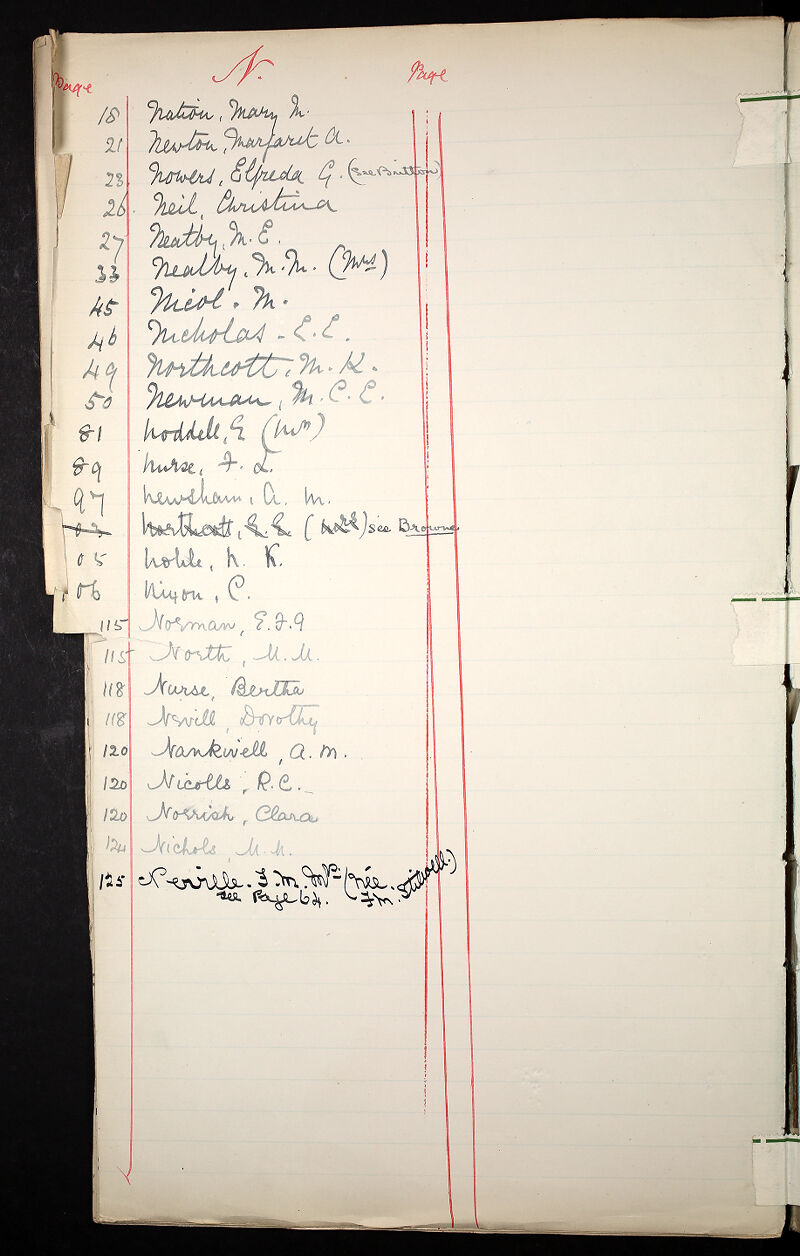 Page N. Page
18 Nation, Mary M.
21 Newton, Margaret A.
23. Nowers, Elfreda G. (see Britton)
26. Neil, Christina
27 Neatby, M. E.
33 Nealby, M. M. (Mrs)
45 Nicol. M.
46 Nicholas - E. E.
49 Northcott, M. K.
50 Newman, M. C. E.
81 Noddell, E (Mrs)
89 Nurse, F. L.
97 Newsham, A. M.
03 Northcott, E. E. (Mrs) see Browne
05 Noble, N. K.
06 Nixon, C.
115 Norman, E. F. G
115 North, M. M.
118 Nurse, Bertha
118 Nevill, Dorothy
120 Nankivell, A. M.
120 Nicolls, R. C.
120 Norrish, Clara
124 Nichols, M. M.
125 Neville. F. M. Mrs (née. Stilwell.)
See Page 64. F M.